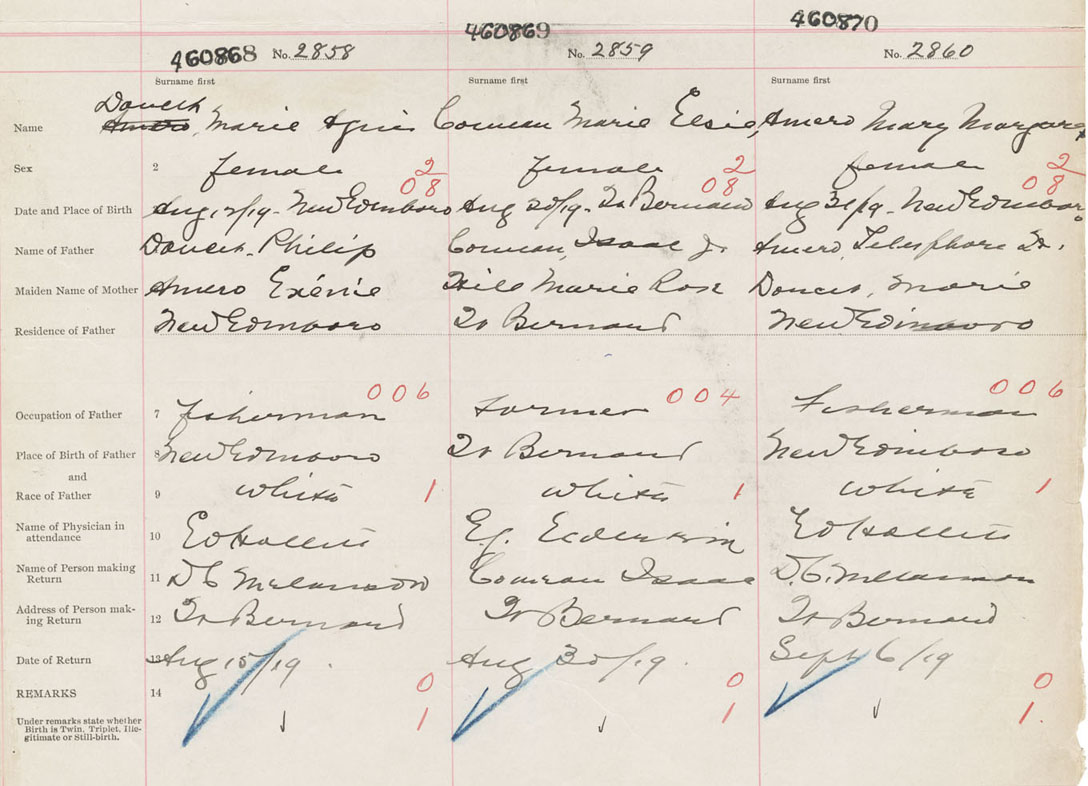 460868 No. 2858 460869 No. 2859 460870 No. 2860
Surname first Surname first Surname first
Doucet
Name Amero, Marie Comeau Marie Elsie, Amero Mary Margaret
Sex 2 female 2 female 2 female 2
08 08 08
Date and Place of Birth Aug 12/19 - New Edinboro Aug 20/19 - St Bernard Aug 31/19 - New Edinboro
Name of Father Doucet, Philip Comeau, Isaac Jr. Amero, Telesphore
Maiden Name of Mother Amero Exénie Marie Rose Doucet, Marie
Residence of Father New Edinboro St Bernard New Edinboro
006 004 006
Occupation of Father 7 fisherman Farmer Fisherman
Place of Birth of Father 8 New Edinboro St Bernard New Edinboro
and
Race of Father 9 White 1 White 1 White 1
Name of Physician in
attendance 10
Name of Person making
Return 11 D C Melanson Comeau Isaac D. C. Melanson
Address of Person mak-
ing Return 12 St Bernard St Bernard St Bernard
Date of Return 13 Aug 15/19. Aug 30/19. Sept 6/19
REMARKS 14 0 0 0
Under remarks state whether
Birth is Twin, Triplet, Ille-
gitimate or Still-birth. 1 1 1.